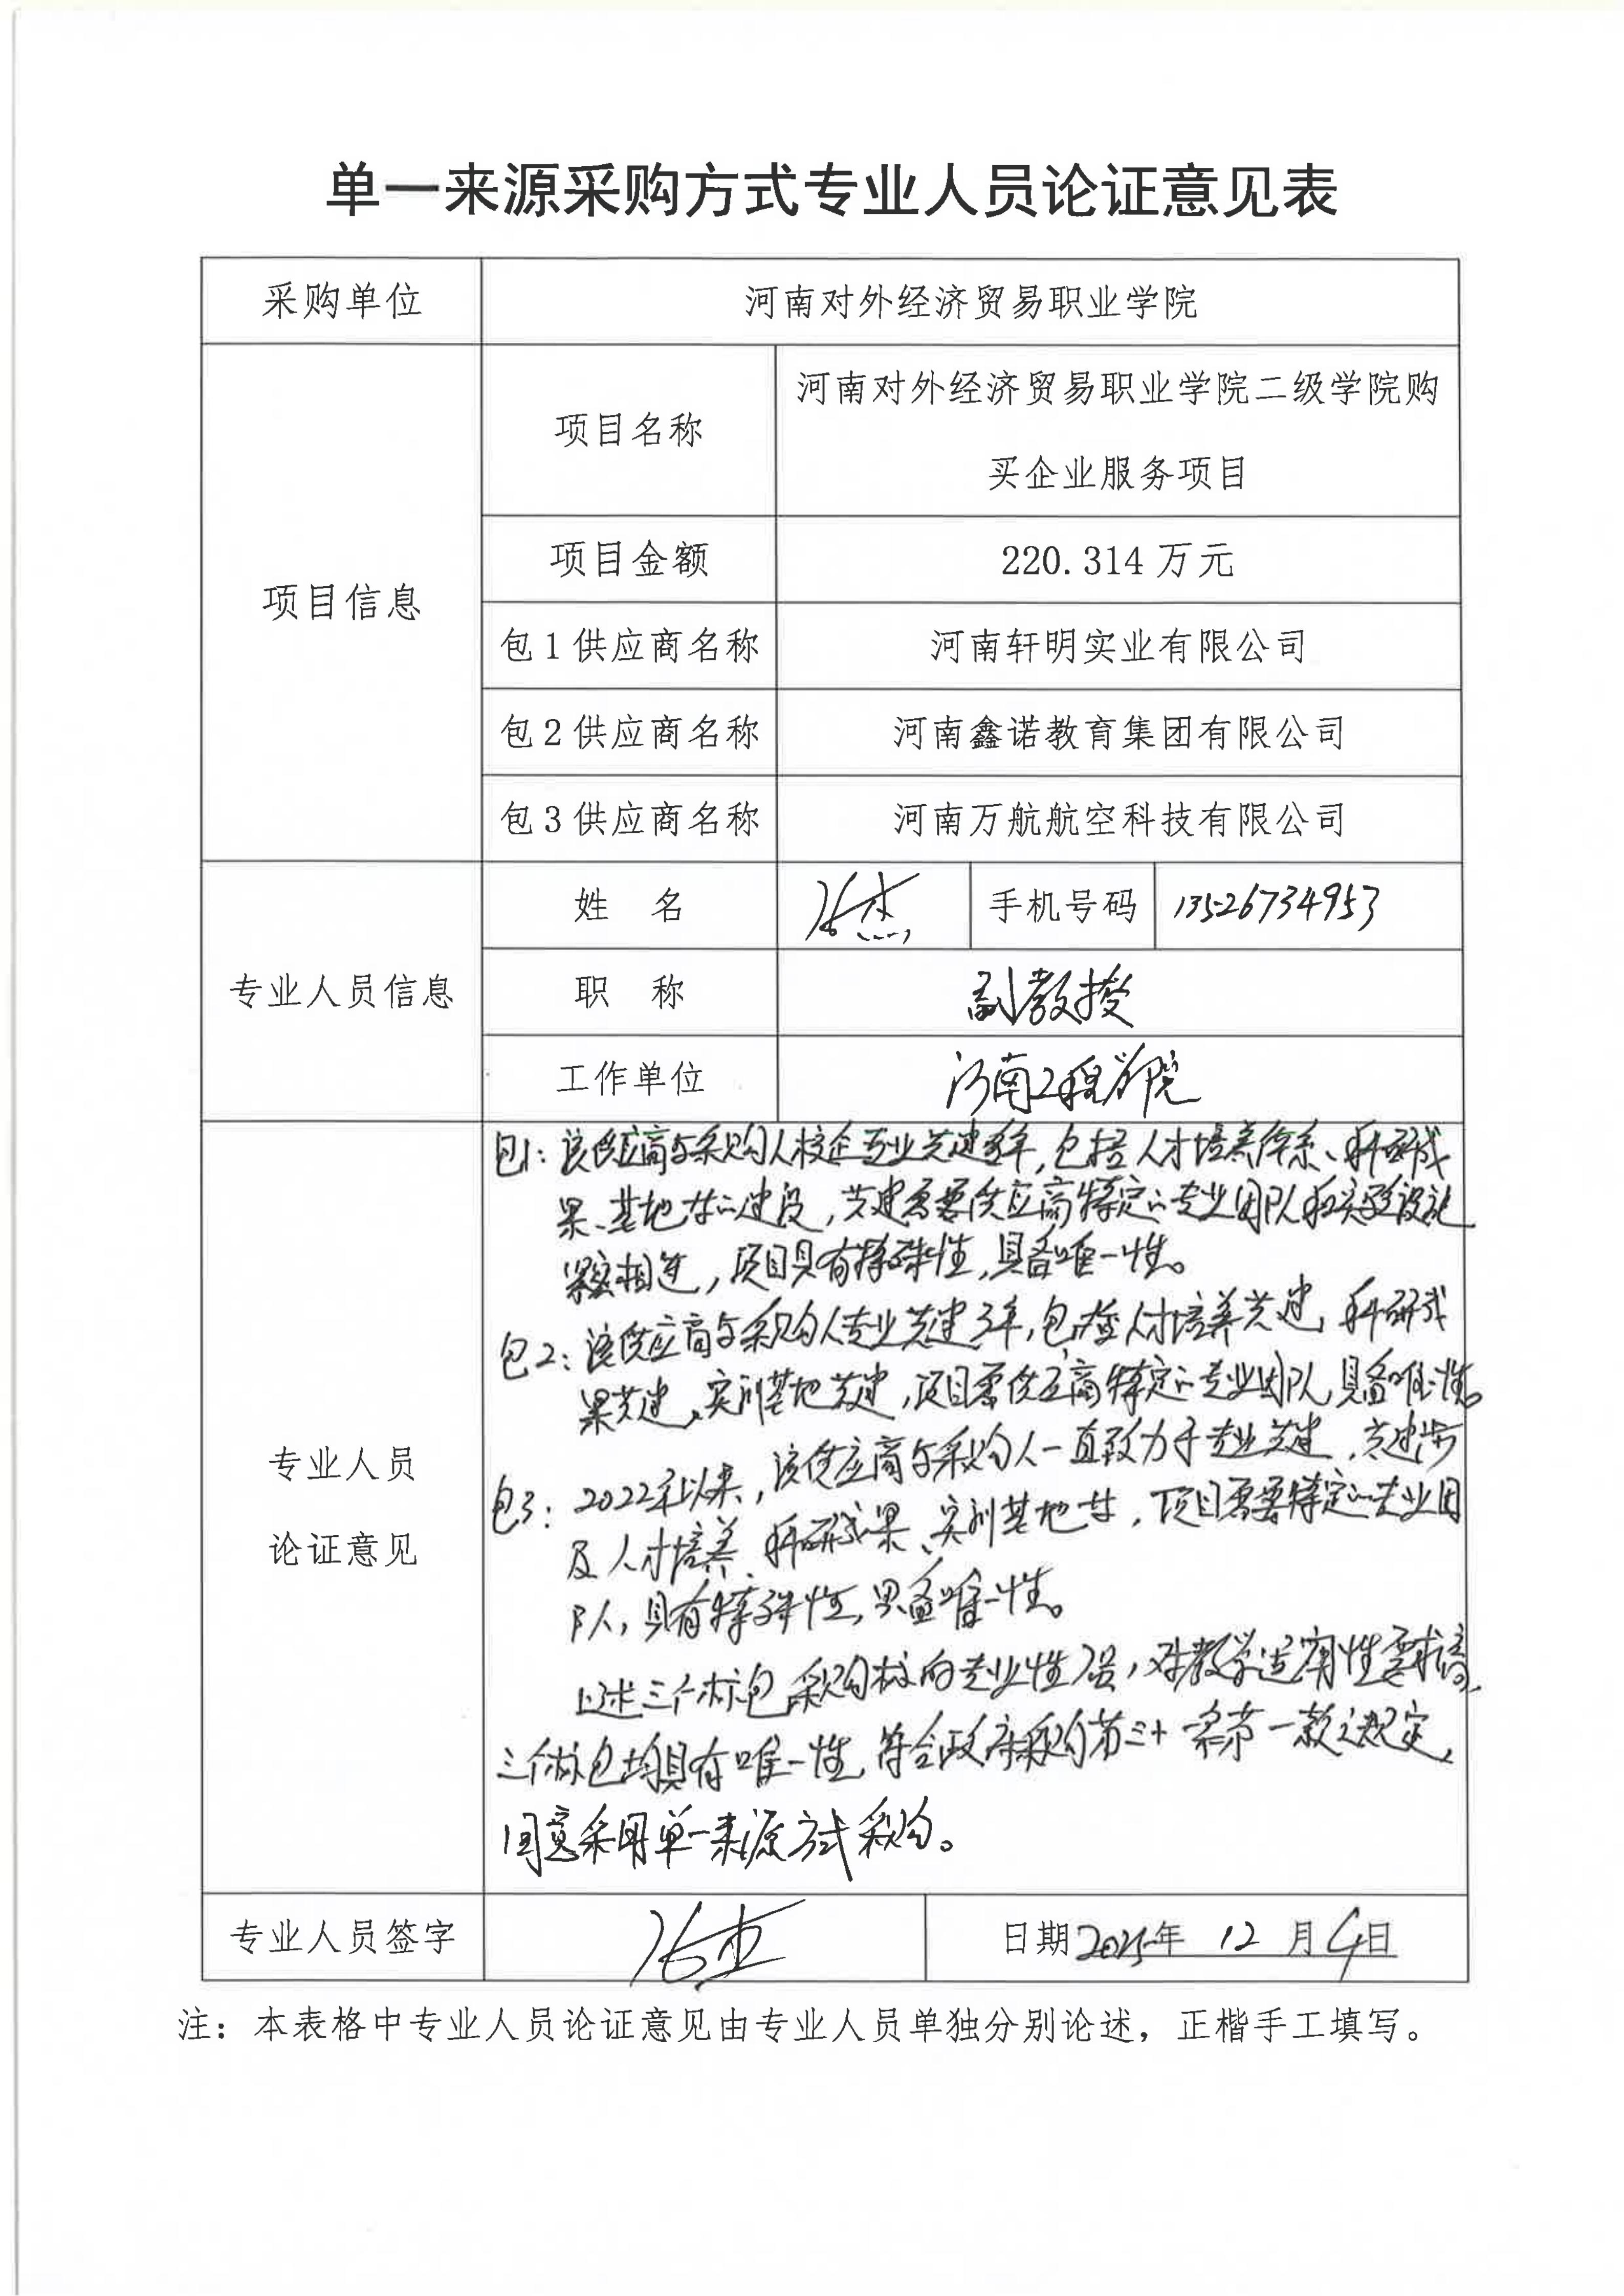 单一来源采购方式专业人员论证意见表
采购单位 河南对外经济贸易职业学院
项目信息
项目名称 河南对外经济贸易职业学院二级学院购
买企业服务项目
项目金额 220.314万元
包1供应商名称 河南轩明实业有限公司
包2供应商名称 河南鑫诺教育集团有限公司
包3供应商名称 河南万航航空科技有限公司
专业人员信息
姓 名 张杰 手机号码 13526734953
职 称 副教授
工作单位 河南工程学院
专业人员
论证意见
包1：该供应商与采购人校企专业共建多年，包括人才培养体系、科研成
果、基地等的建设，共建需要供应商特定的专业团队和实验设施
紧密相连，项目具有特殊性，具备唯一性。
包2：该供应商与采购人专业共建3年，包括人才培养共建，科研成
果共建，实训基地共建，项目需供应商特定的专业团队，具备唯一性。
包3：2022年以来，该供应商与采购人一直致力于专业共建，共建涉
及人才培养、科研成果、实训基地等，项目需要特定的专业团
队，具有特殊性，具备唯一性。
上述三个标包采购标的专业性强，对教学适用性要求高，
三个标包均具有唯一性，符合政府采购第三十一条第一款之规定，
同意采用单一来源方式采购。
专业人员签字 张杰 日期2025年 12 月4日
注：本表格中专业人员论证意见由专业人员单独分别论述，正楷手工填写。